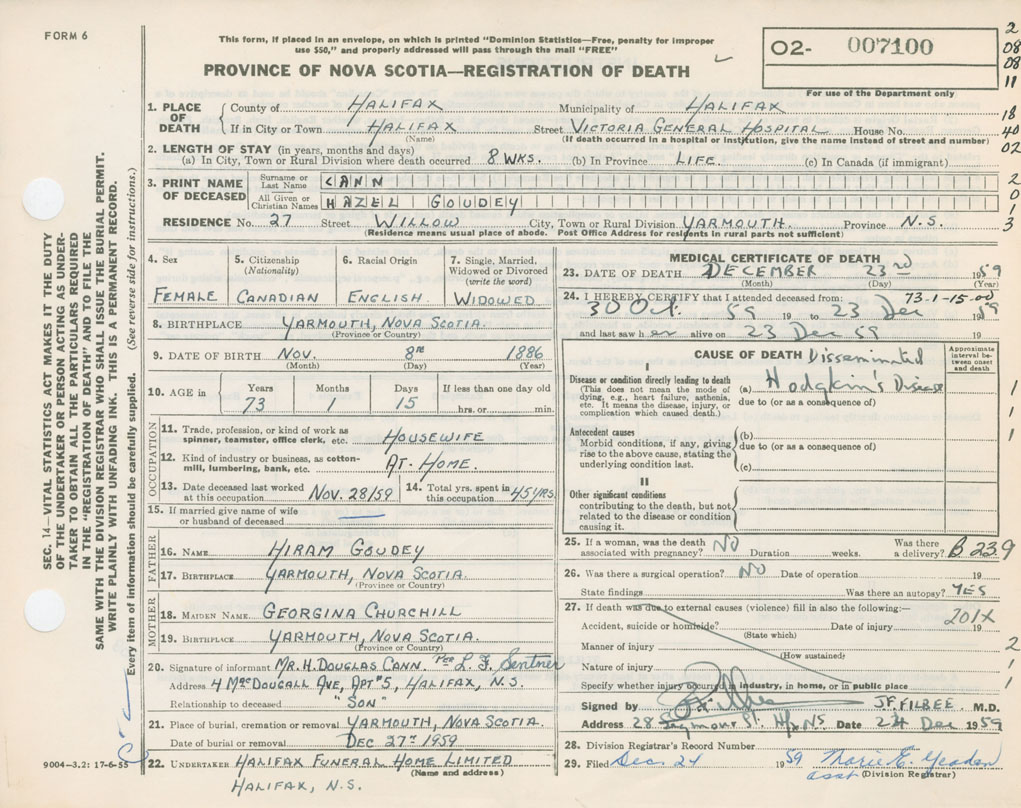 FORM 6
This form, if placed in an envelope, on which is printed "Dominion Statistics—Free, penalty for improper
use $50," and properly addressed will pass through the mail "FREE"
PROVINCE OF NOVA SCOTIA—REGISTRATION OF DEATH
O2- 007100
For use of the Department only
2
08
08
11
18
40
02
2
0
1
3
1. PLACE OF DEATH
County of HALIFAX Municipality of HALIFAX
If in City or Town HALIFAX Street VICTORIA GENERAL HOSPITAL House No.
(Name) (If death occurred in a hospital or institution, give the name instead of street and number)
2. LENGTH OF STAY (in years, months and days)
(a) In City, Town or Rural Division where death occurred 8 WKS. (b) In Province LIFE. (c) In Canada (if immigrant)
3. PRINT NAME OF DECEASED
Surname or Last Name CANN
All Given or Christian Names HAZEL GOUDEY
RESIDENCE No. 27 Street WILLOW City, Town or Rural Division YARMOUTH. Province N.S.
(Residence means usual place of abode. Post Office Address for residents in rural parts not sufficient)
SEC. 14—VITAL STATISTICS ACT MAKES IT THE DUTY
OF THE UNDERTAKER OR PERSON ACTING AS UNDER-
TAKER TO OBTAIN ALL THE PARTICULARS REQUIRED
IN THE "REGISTRATION OF DEATH" AND TO FILE THE
SAME WITH THE DIVISION REGISTRAR WHO SHALL ISSUE THE BURIAL PERMIT.
WRITE PLAINLY WITH UNFADING INK. THIS IS A PERMANENT RECORD.
Every item of information should be carefully supplied. (See reverse side for instructions.)
4. Sex
FEMALE
5. Citizenship
(Nationality)
CANADIAN
6. Racial Origin
ENGLISH.
7. Single, Married,
Widowed or Divorced
(write the word)
WIDOWED
8. BIRTHPLACE YARMOUTH, NOVA SCOTIA.
(Province or Country)
9. DATE OF BIRTH NOV. 8TH 1886
(Month) (Day) (Year)
10. AGE in Years Months Days If less than one day old
73 1 15 hrs. or min.
OCCUPATION
11. Trade, profession, or kind of work as
spinner, teamster, office clerk, etc. HOUSEWIFE
12. Kind of industry or business, as cotton-
mill, lumbering, bank, etc. AT-HOME.
13. Date deceased last worked
at this occupation NOV. 28/59
14. Total yrs. spent in
this occupation 45 YRS.
15. If married give name of wife
or husband of deceased —
FATHER
16. NAME HIRAM GOUDEY
17. BIRTHPLACE YARMOUTH, NOVA SCOTIA.
(Province or Country)
MOTHER
18. MAIDEN NAME GEORGINA CHURCHILL
19. BIRTHPLACE YARMOUTH, NOVA SCOTIA.
(Province or Country)
20. Signature of informant MR. H. DOUGLAS CANN. PER L. F. Sentner
Address 4 MACDOUGALL AVE, APT #5, HALIFAX, N.S.
Relationship to deceased "SON"
21. Place of burial, cremation or removal YARMOUTH, NOVA SCOTIA.
Date of burial or removal DEC 27TH 1959
22. UNDERTAKER HALIFAX FUNERAL HOME LIMITED
(Name and address)
HALIFAX, N.S.
9004-3.2: 17-6-55
MEDICAL CERTIFICATE OF DEATH
23. DATE OF DEATH DECEMBER 23rd 1959
(Month) (Day) (Year)
73-1-15-00
24. I HEREBY CERTIFY that I attended deceased from:
30 Oct. 59 19 to 23 Dec 1959
and last saw her alive on 23 Dec 59 19
CAUSE OF DEATH
Approximate interval between onset and death
I
Disease or condition directly leading to death
(This does not mean the mode of
dying, e.g., heart failure, asthenia,
etc. It means the disease, injury, or
complication which caused death.)
(a) Disseminated
Hodgkin's Disease
due to (or as a consequence of)
1
Antecedent causes
Morbid conditions, if any, giving
rise to the above cause, stating the
underlying condition last.
(b)
due to (or as a consequence of)
(c)
1
II
Other significant conditions
contributing to the death, but not
related to the disease or condition
causing it.
25. If a woman, was the death
associated with pregnancy? NO Duration weeks. Was there
a delivery? B 23.9
26. Was there a surgical operation? NO Date of operation 19
State findings Was there an autopsy? YES
27. If death was due to external causes (violence) fill in also the following:—
201X
Accident, suicide or homicide? Date of injury 19
(State which)
Manner of injury 2
(How sustained)
Nature of injury 1
Specify whether injury occurred in industry, in home, or in public place 1
Signed by J.F. FILBEE M.D.
Address 28 Seymour St. Hfx NS Date 24 Dec 1959
28. Division Registrar's Record Number
29. Filed Dec. 24 1959 Marie E.
asst (Division Registrar)